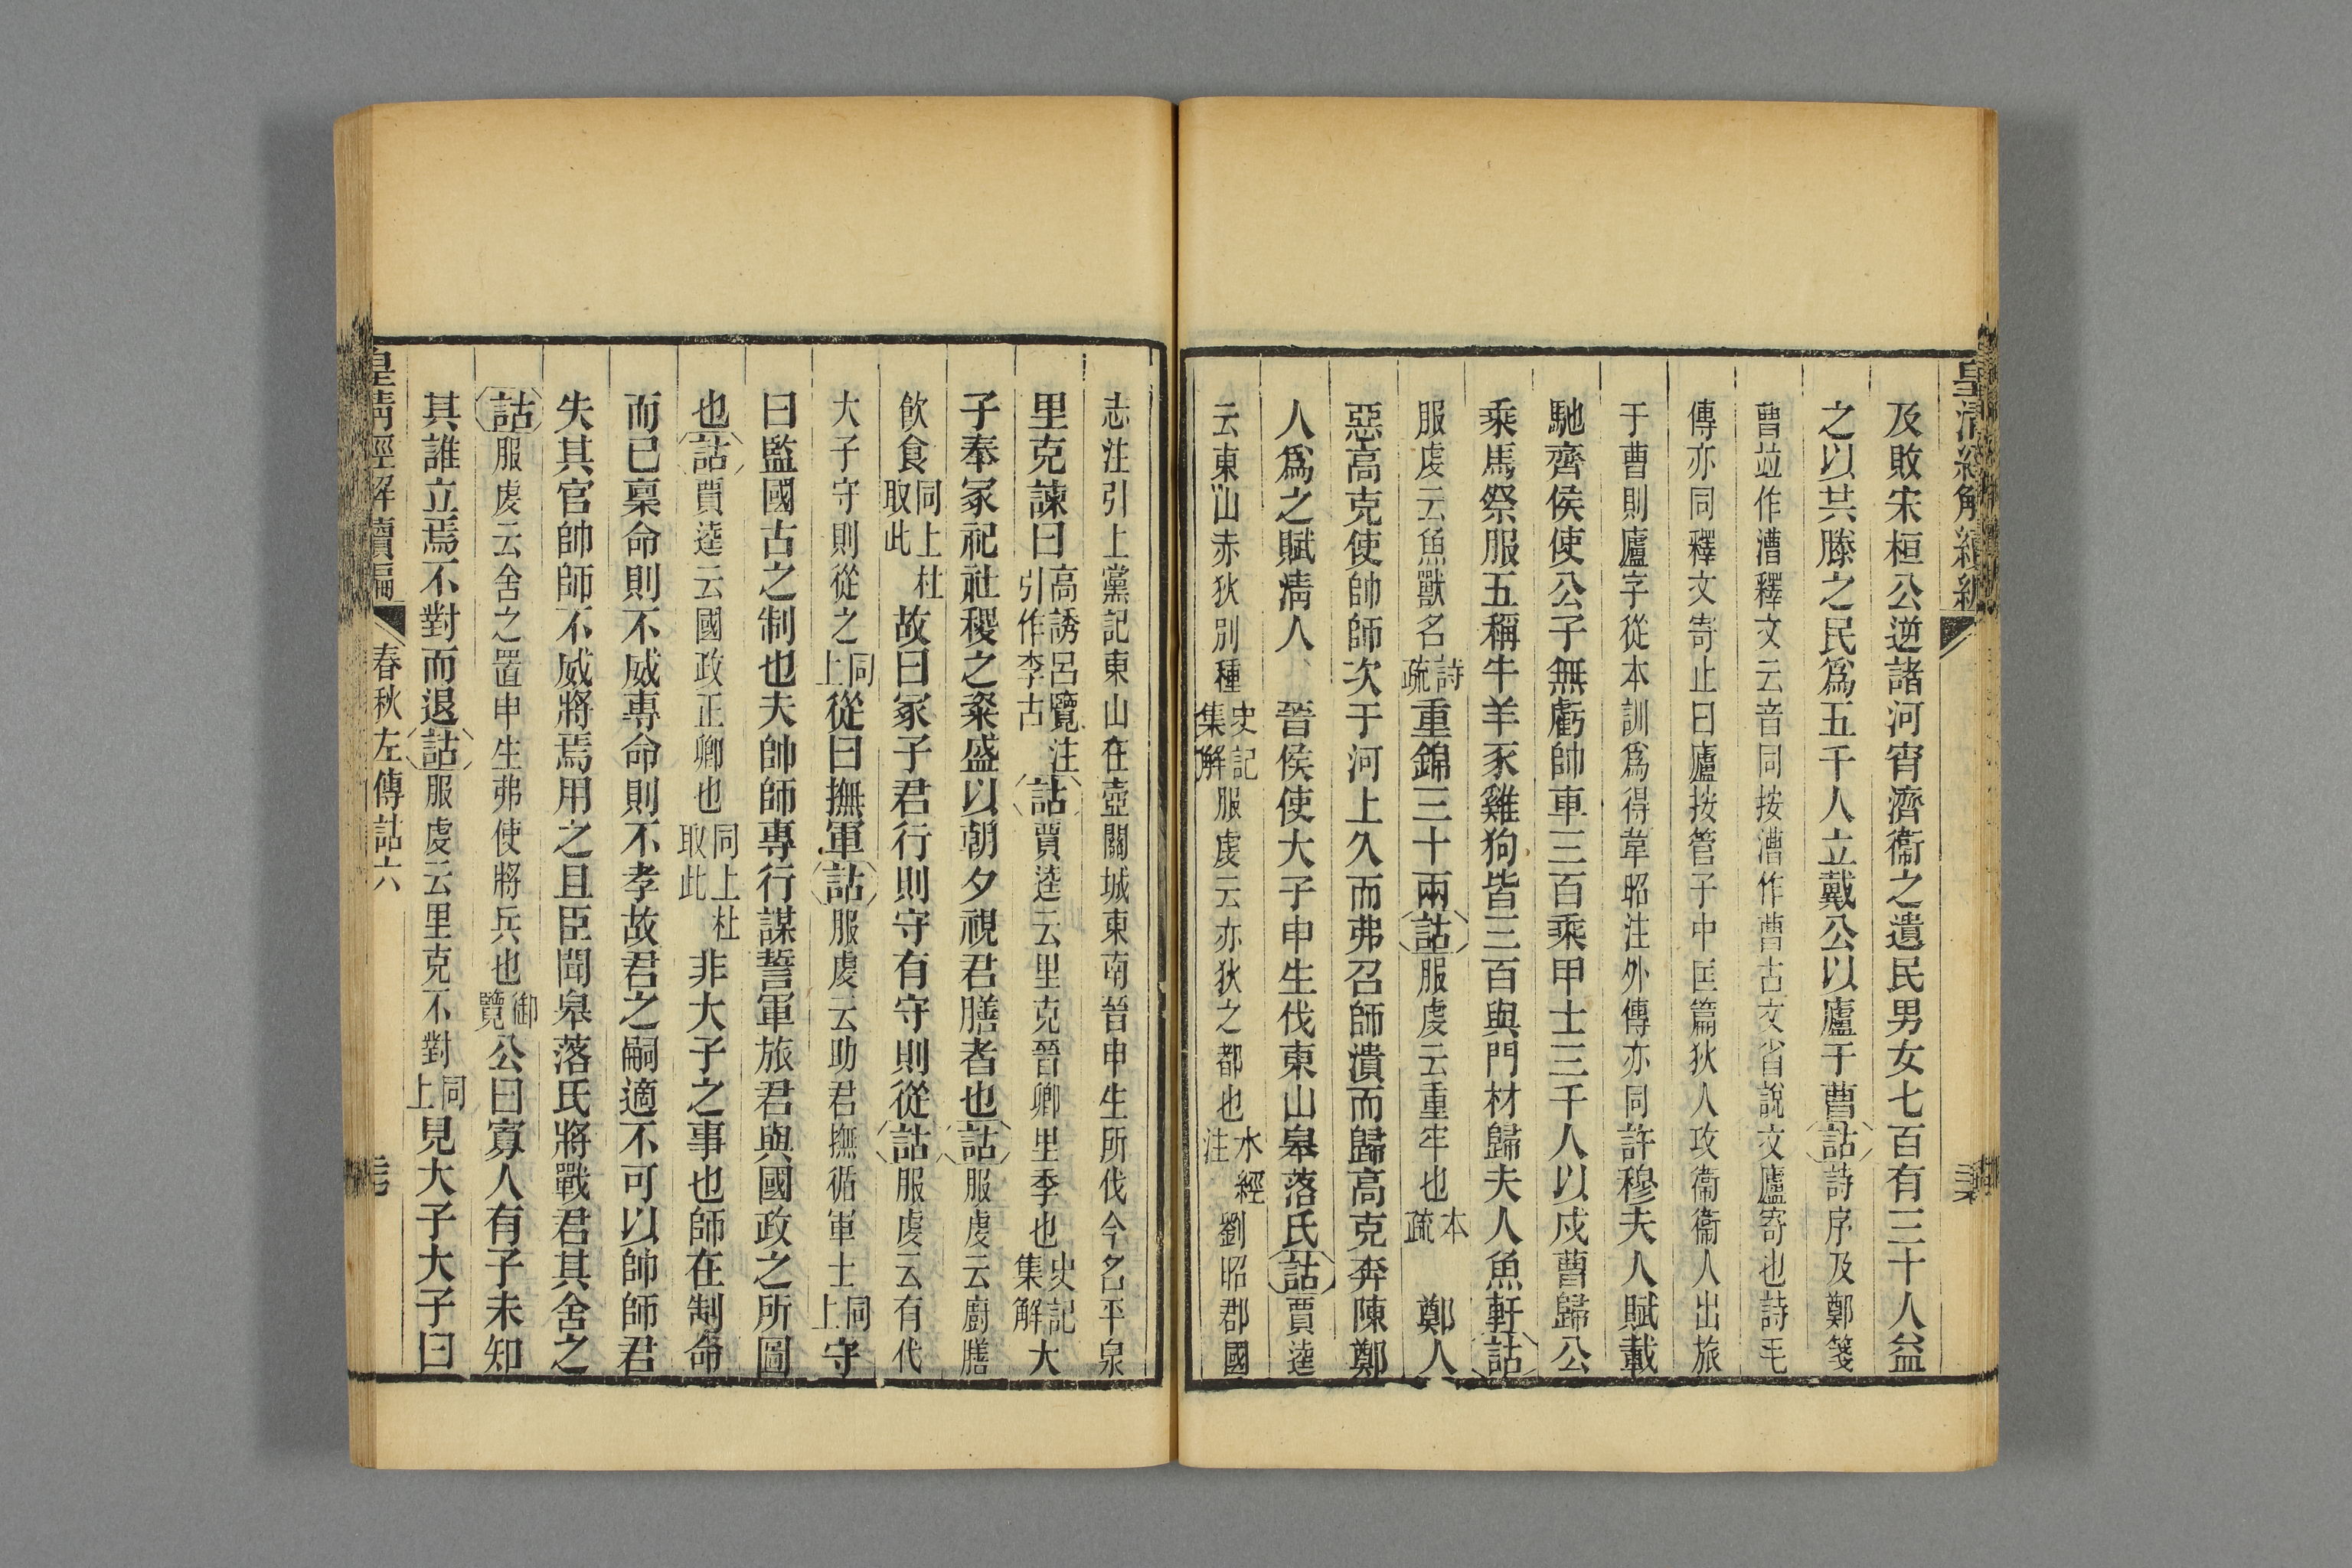 皇清經解續編
及敗宋桓公逆諸河宵濟衞之遺民男女七百有三十人益
之以共滕之民爲五千人立戴公以廬于曹詁詩序及鄭箋
曹竝作漕釋文云音同按漕作曹古文省說文廬寄也詩毛
傳亦同釋文寄止曰廬按管子中匡篇狄人攻衞衞人出旅
于曹則廬字從本訓爲得韋昭注外傳亦同許穆夫人賦載
馳齊侯使公子無虧帥車三百乘甲士三千人以戍曹歸公
乘馬祭服五稱牛羊豕雞狗皆三百與門材歸夫人魚軒詁
服虔云魚獸名詩疏重錦三十兩詁服虔云重牢也本疏 鄭人
惡高克使帥師次于河上久而弗召師潰而歸高克奔陳鄭
人爲之賦淸人 晉侯使大子申生伐東山皋落氏詁賈逵
云東山赤狄別種史記集解服虔云亦狄之都也水經注劉昭郡國
志注引上黨記東山在壺關城東南晉申生所伐今名平泉
里克諫曰高誘呂覽注引作李古詁賈逵云里克晉卿里季也史記集解大
子奉冢祀社稷之粢盛以朝夕視君膳者也詁服虔云廚膳
飮食同上杜取此故曰冢子君行則守有守則從詁服虔云有代
大子守則從之同上從曰撫軍詁服虔云助君撫循軍士同上守
曰監國古之制也夫帥師專行謀誓軍旅君與國政之所圖
也詁賈逵云國政正卿也同上杜取此非大子之事也師在制命
而已稟命則不威專命則不孝故君之嗣適不可以帥師君
失其官帥師不威將焉用之且臣聞皋落氏將戰君其舍之
詁服虔云舍之置申生弗使將兵也御覽公曰寡人有子未知
其誰立焉不對而退詁服虔云里克不對同上見大子大子曰
皇淸經解續編 春秋左傳詁六